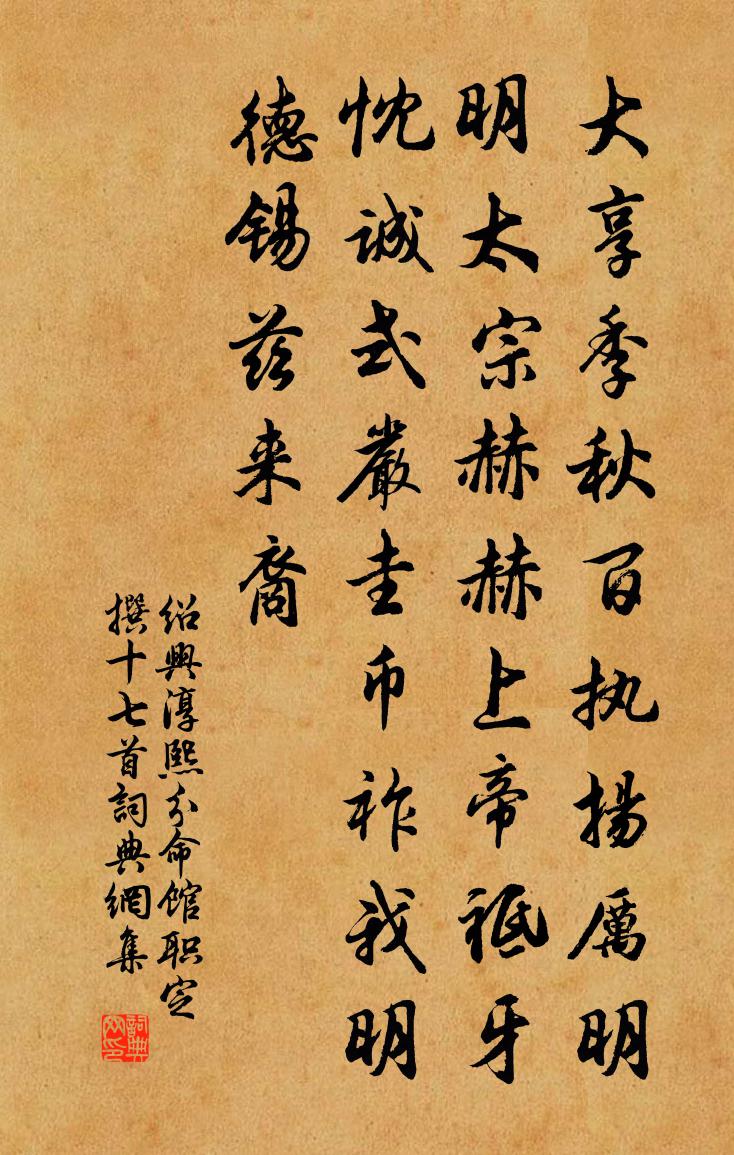 大享季秋百执揚厲明
明太宗赫赫上帝祗牙
忱誠式嚴圭币祚我明
德錫兹来裔
紹興淳熙分命館职定
撰十七首詞典網集
詞典网印